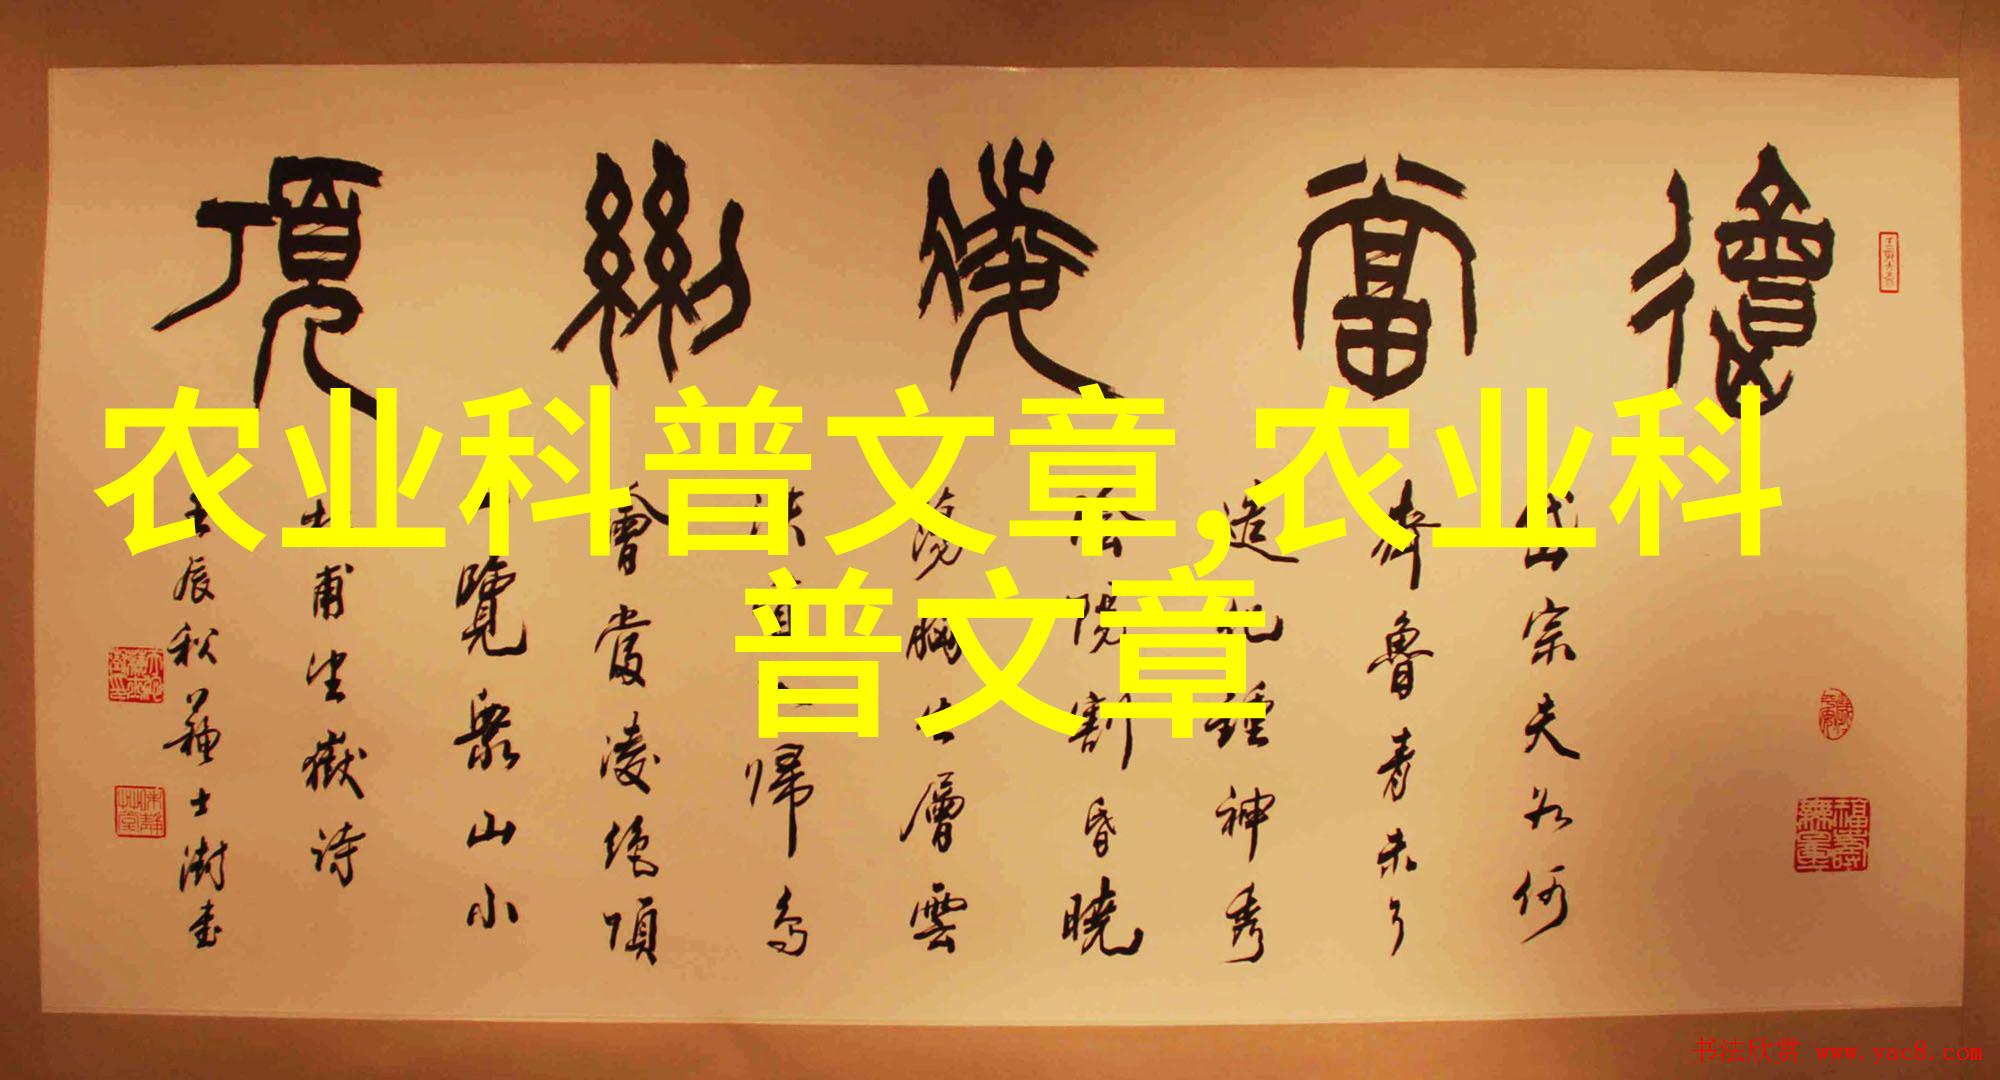 農業科普文章,农业科
普文章
會當凌絶頂
岱宗夫如何
齊魯青未了
造化鍾神秀
陰陽割昏曉
蕩胸生層雲
決歸鳥
會當凌絶頂
一覽衆山小
杜甫望嶽詩
壬辰秋蘓士澍書
福壽無量
书法欣赏 www.yac8.com